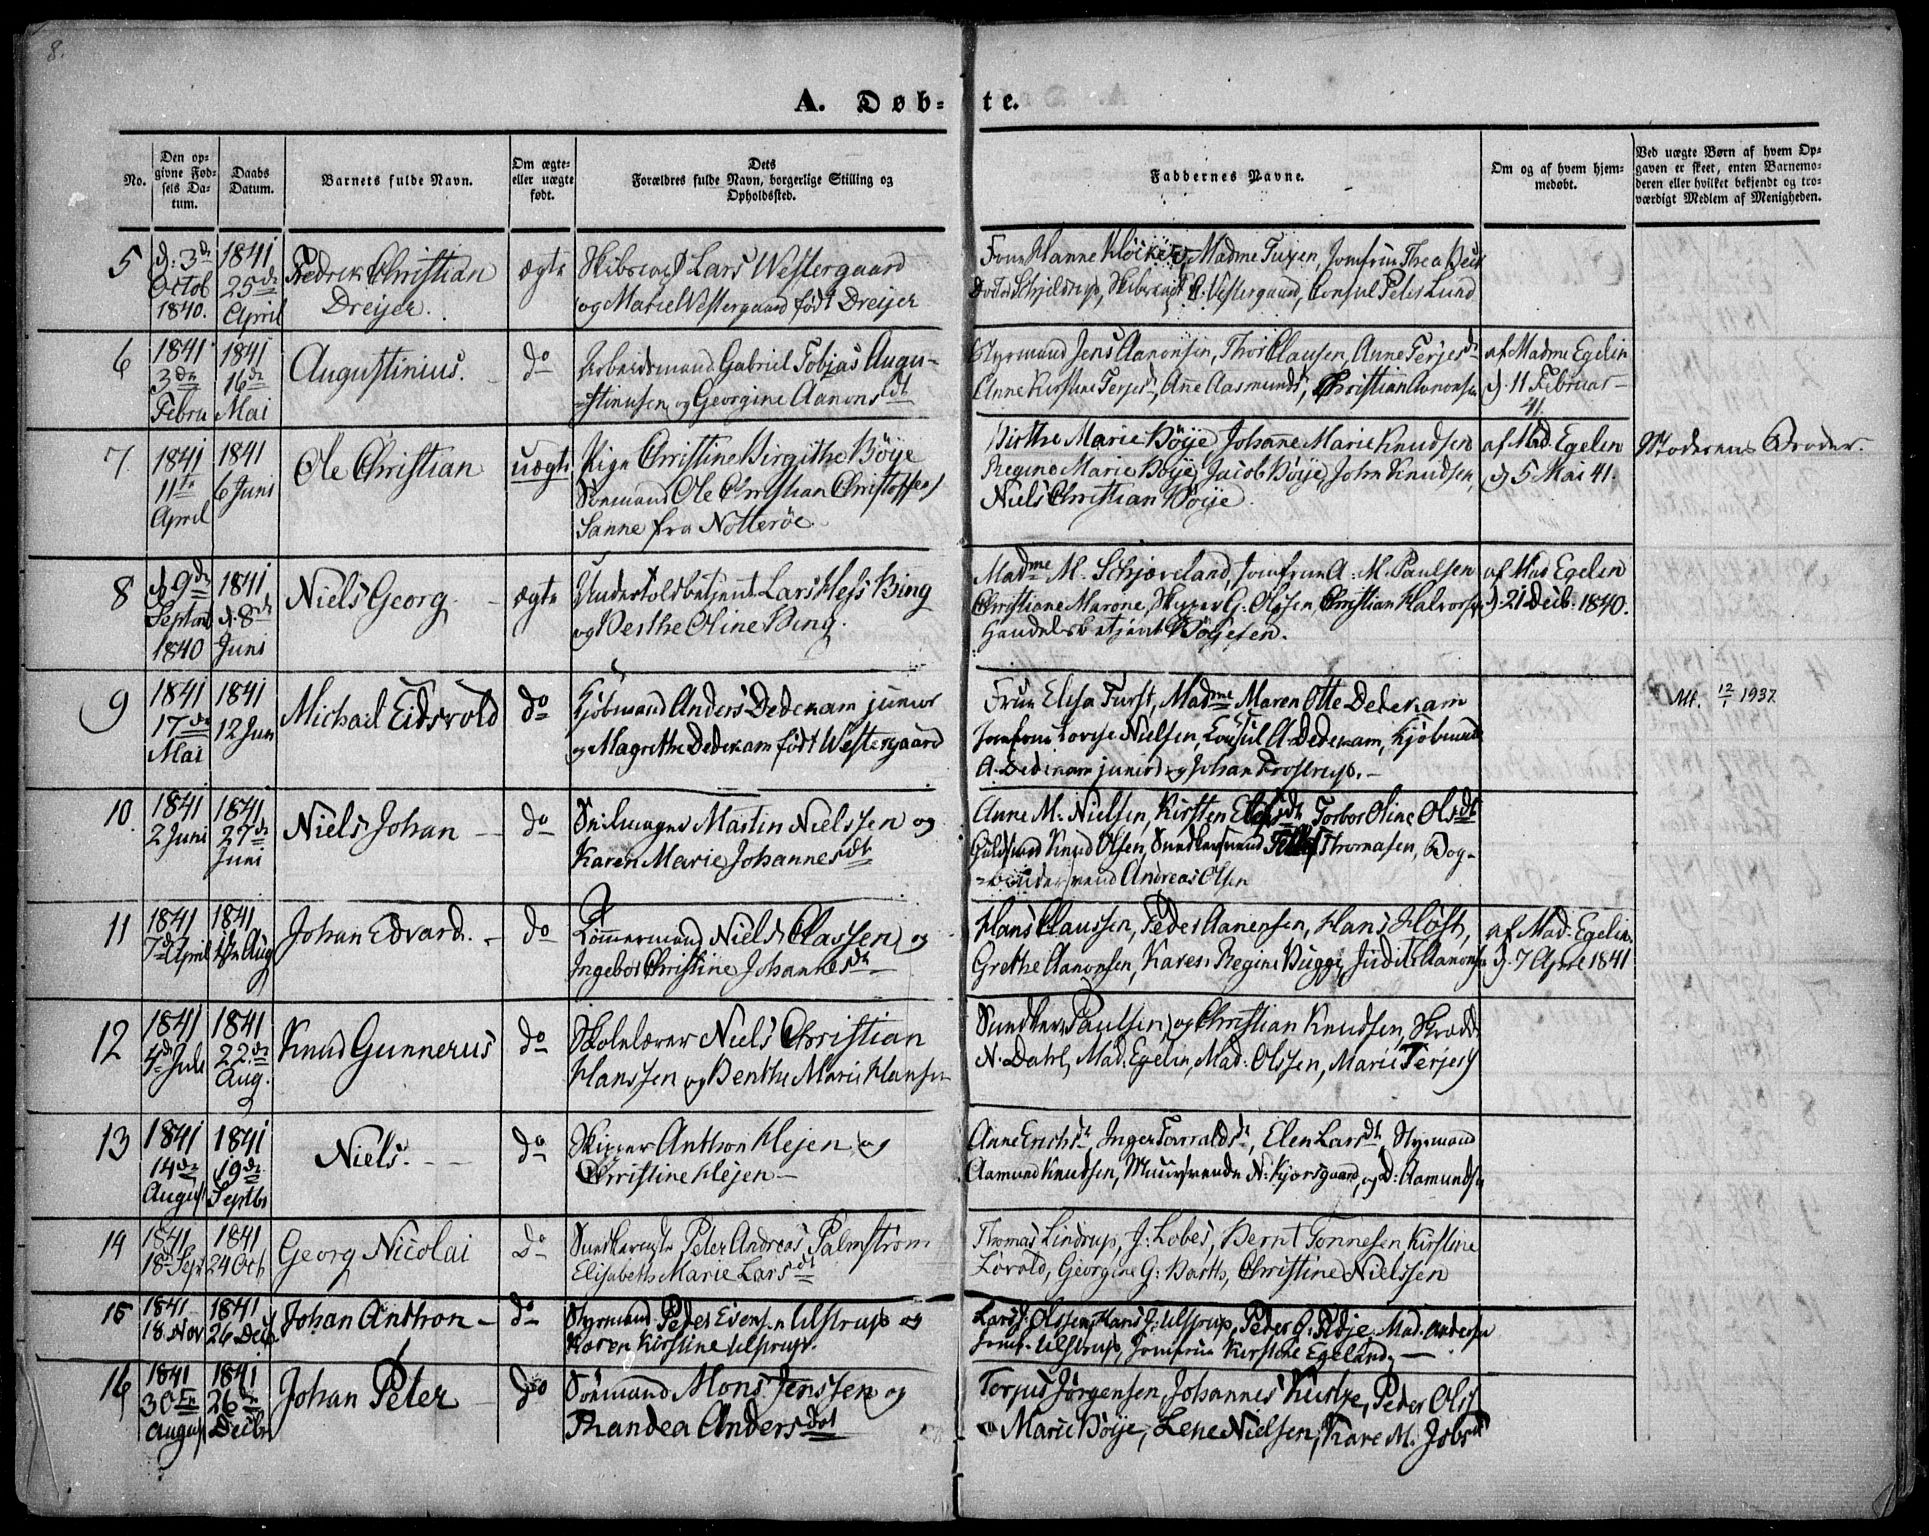 8.
A. Døb-te.
No.
Den op-
givne Fød-
sels Da-
tum.
Daabs
Datum.
Barnets fulde Navn.
Om ægte-
eller uægte
født.
Dets
Forældres fulde Navn, borgerlige Stilling og
Opholdssted.
Faddernes Navne.
Om og af hvem hjem-
medøbt.
Ved uægte Børn af hvem Op-
gaven er skeet, enten Barnemo-
deren eller hvilket bekjendt og tro-
værdigt Medlem af Menigheden.
5
d: 3de
Octob
1840.
1841
25de
April
Fredrik Christian
Dreijer.
ægte
Lars Westergaard
og Marie Westergaard født Dreijer
Madme Tuxen, Jomfrue Thea
Westergaard, Consul Peter Lund
6
1841
3de
Febru
1841
16de
Mai
Augustinius.
do
Arbeidsmand Gabriel Tobias Augu-
stinusen og Georgine Aanonsdt
Styrmand Jens Aanonsen, Thor Clausen, Anne Terjesdt
Anne Kirstine Terjesdt, Ane Aasmundsdt, Christian Aanonsen
af Madme Egelin
d. 11 Februar
41.
7
1841
11te
April
1841
6 Juni
Ole Christian
uægte
Pige Christine Birgithe Bøye
Sømand Ole Christian Christoffers
Sanne fra Notterøe.
Birthe Marie Bøye, Johanne Marie Knudsen
Regine Marie Bøye, Jacob Bøye, John Knudsen,
Niels Christian Bøye.
af Mad. Egelin
d 5 Mai 41.
Moderens Broder.
8
d 9de
Septbr
1840
1841
d. 8de
Juni
Niels Georg.
ægte
Undertoldbetjent Lars Hess Bing
og Berthe Oline Bing.
Madme M. Schjæveland, Jomfrue A. M. Paulsen
Christiane Marone, Skipper G. Olssen, Christian Halvorsen
Handelsbetjent Bøyesen.
af Mad Egelin
d. 21 Decb. 1840.
9
1841
17de
Mai
1841
12 Jun
Michael Eidsvold
do
Kjøbmand Anders Dedekam junior
og Magrethe Dedekam født Westergaard
Frue Elisa Furst, Madme Maren Otte Dedekam
Jomfrue Lovise Nielsen, Consul A Dedekam, Kjøbmand
A. Dedekam junior og Johan Frostrup.
Att. 12/1 1937
10.
1841
2 Juni
1841
27de
Juni
Niels Johan
do
Seilmager Martin Nielssen og
Karen Marie Johannesdt
Anne M. Nielsen, Kirsten Torbor Oline Olsdt
Guldsmed Knud Olsen, Snedkersvend Thomasen, Bog-
bindersvend Andreas Olsen
11
1841
7de April
1841
Aug
Johan Edvard.
do
Tømmermand Niels Classen og
Ingebor Christine Johannesdt
Hans Claussen, Peder Aanensen, Hans Høst,
Grethe Aanonsen, Karen Regine Bugge, Judit Aanonsen
af Mad. Egelin
d. 7 April 1841
12
1841
4de Juli
1841
22de
Aug.
Knud Gunnerus
do
Skolelærer Niels Christian
Hanssen og Benthe Marie Hansen
Snedker Paulsen og Christian Knudsen, Skrædd
N. Dahl, Mad. Egelin, Mad. Olssen, Marie Terjes
13
1841
14de
August
1841
19de
Septbr
Niels.
do
Skipper Anthon Klejen og
Christine Klejen
Anne Erichsdt, Inger Torvaldsdt, Elen Larsdt, Styrmand
Aamund Knudsen, Muursvende N. Kjærsgaard, og D. Aamundsen
14
1841
18de Sept
1841
24 Oct
Georg Nicolai
do
Peter Andreas Palmstrøm
Elisabeth Marie Larsdt
Thomas Lindrup, J. Lobes, Bernt Tønnesen Kirstine
Løvold, Georgine G. Barth, Christine Nielssen
15
1841
18 Nov
1841
26 Decb
Johan Anthon
do
Styrmand Peder Evensen Ulstrup og
Karen Kirstine Ulstrup.
Lars Olssen, Hans Ulstrup, Peder Mad. Andersen
Jomf. Ulstrup, Jomfrue Kirstine Egeland,
16
1841
30te
August
1841
26de
Decbr
Johan Peter
do
Sømand Mons Jenssen og
Thandea Andersdat
Torjus Jørgensen, Johannes Peder Olss
Marie Bøye, Lene Nielsen, Kare M. Jobsdt